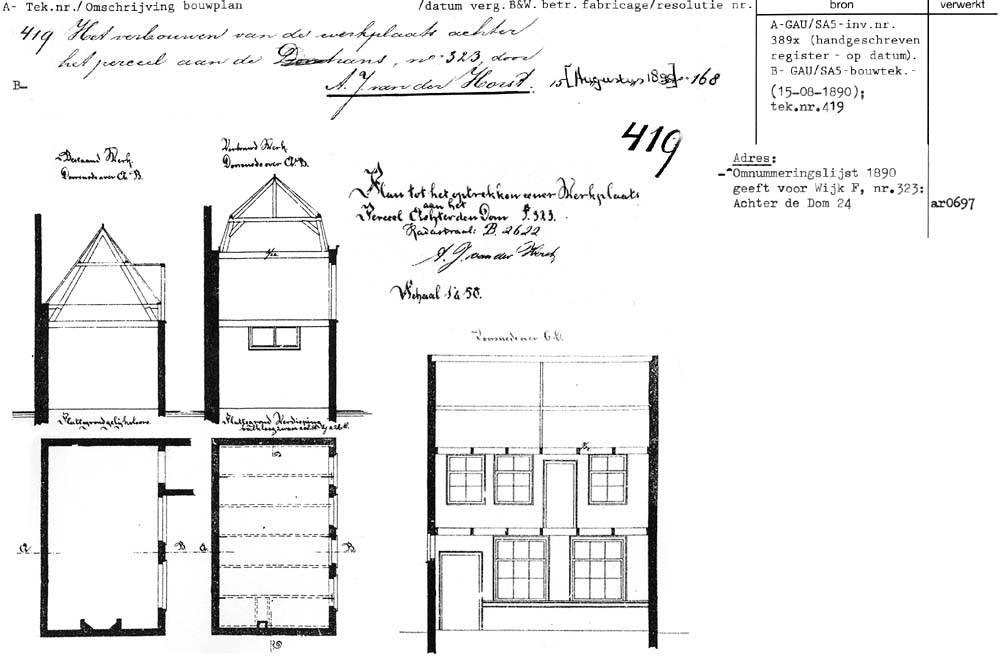 A- Tek.nr./Omschrijving bouwplan /datum verg.B&W. betr. fabricage/resolutie nr.
bron
verwerkt
419 Het verbouwen van de werkplaats achter
het perceel aan de trans, no 323, door
B- A. J. van der Horst. 15 [Augustus 1890] - 168
A-GAU/SA5-inv.nr.
389x (handgeschreven
register - op datum).
B- GAU/SA5-bouwtek.-
(15-08-1890);
tek.nr.419
419
Adres:
Omnummeringslijst 1890
geeft voor Wijk F, nr.323:
Achter de Dom 24
ar0697
Bestaand Werk.
Doorsnede over A-B.
Verbouwd Werk
Doorsnede over A-B.
Plan tot het optrekken eener Werkplaats
aan het
Perceel Achter den Dom F. 323.
Kadastraal: B. 2622
A. J. van der Horst
Schaal 1 à 50.
Doorsnede over C-D.
Plattegrond gelijkvloers.
Plattegrond Verdieping
A
B
A
B